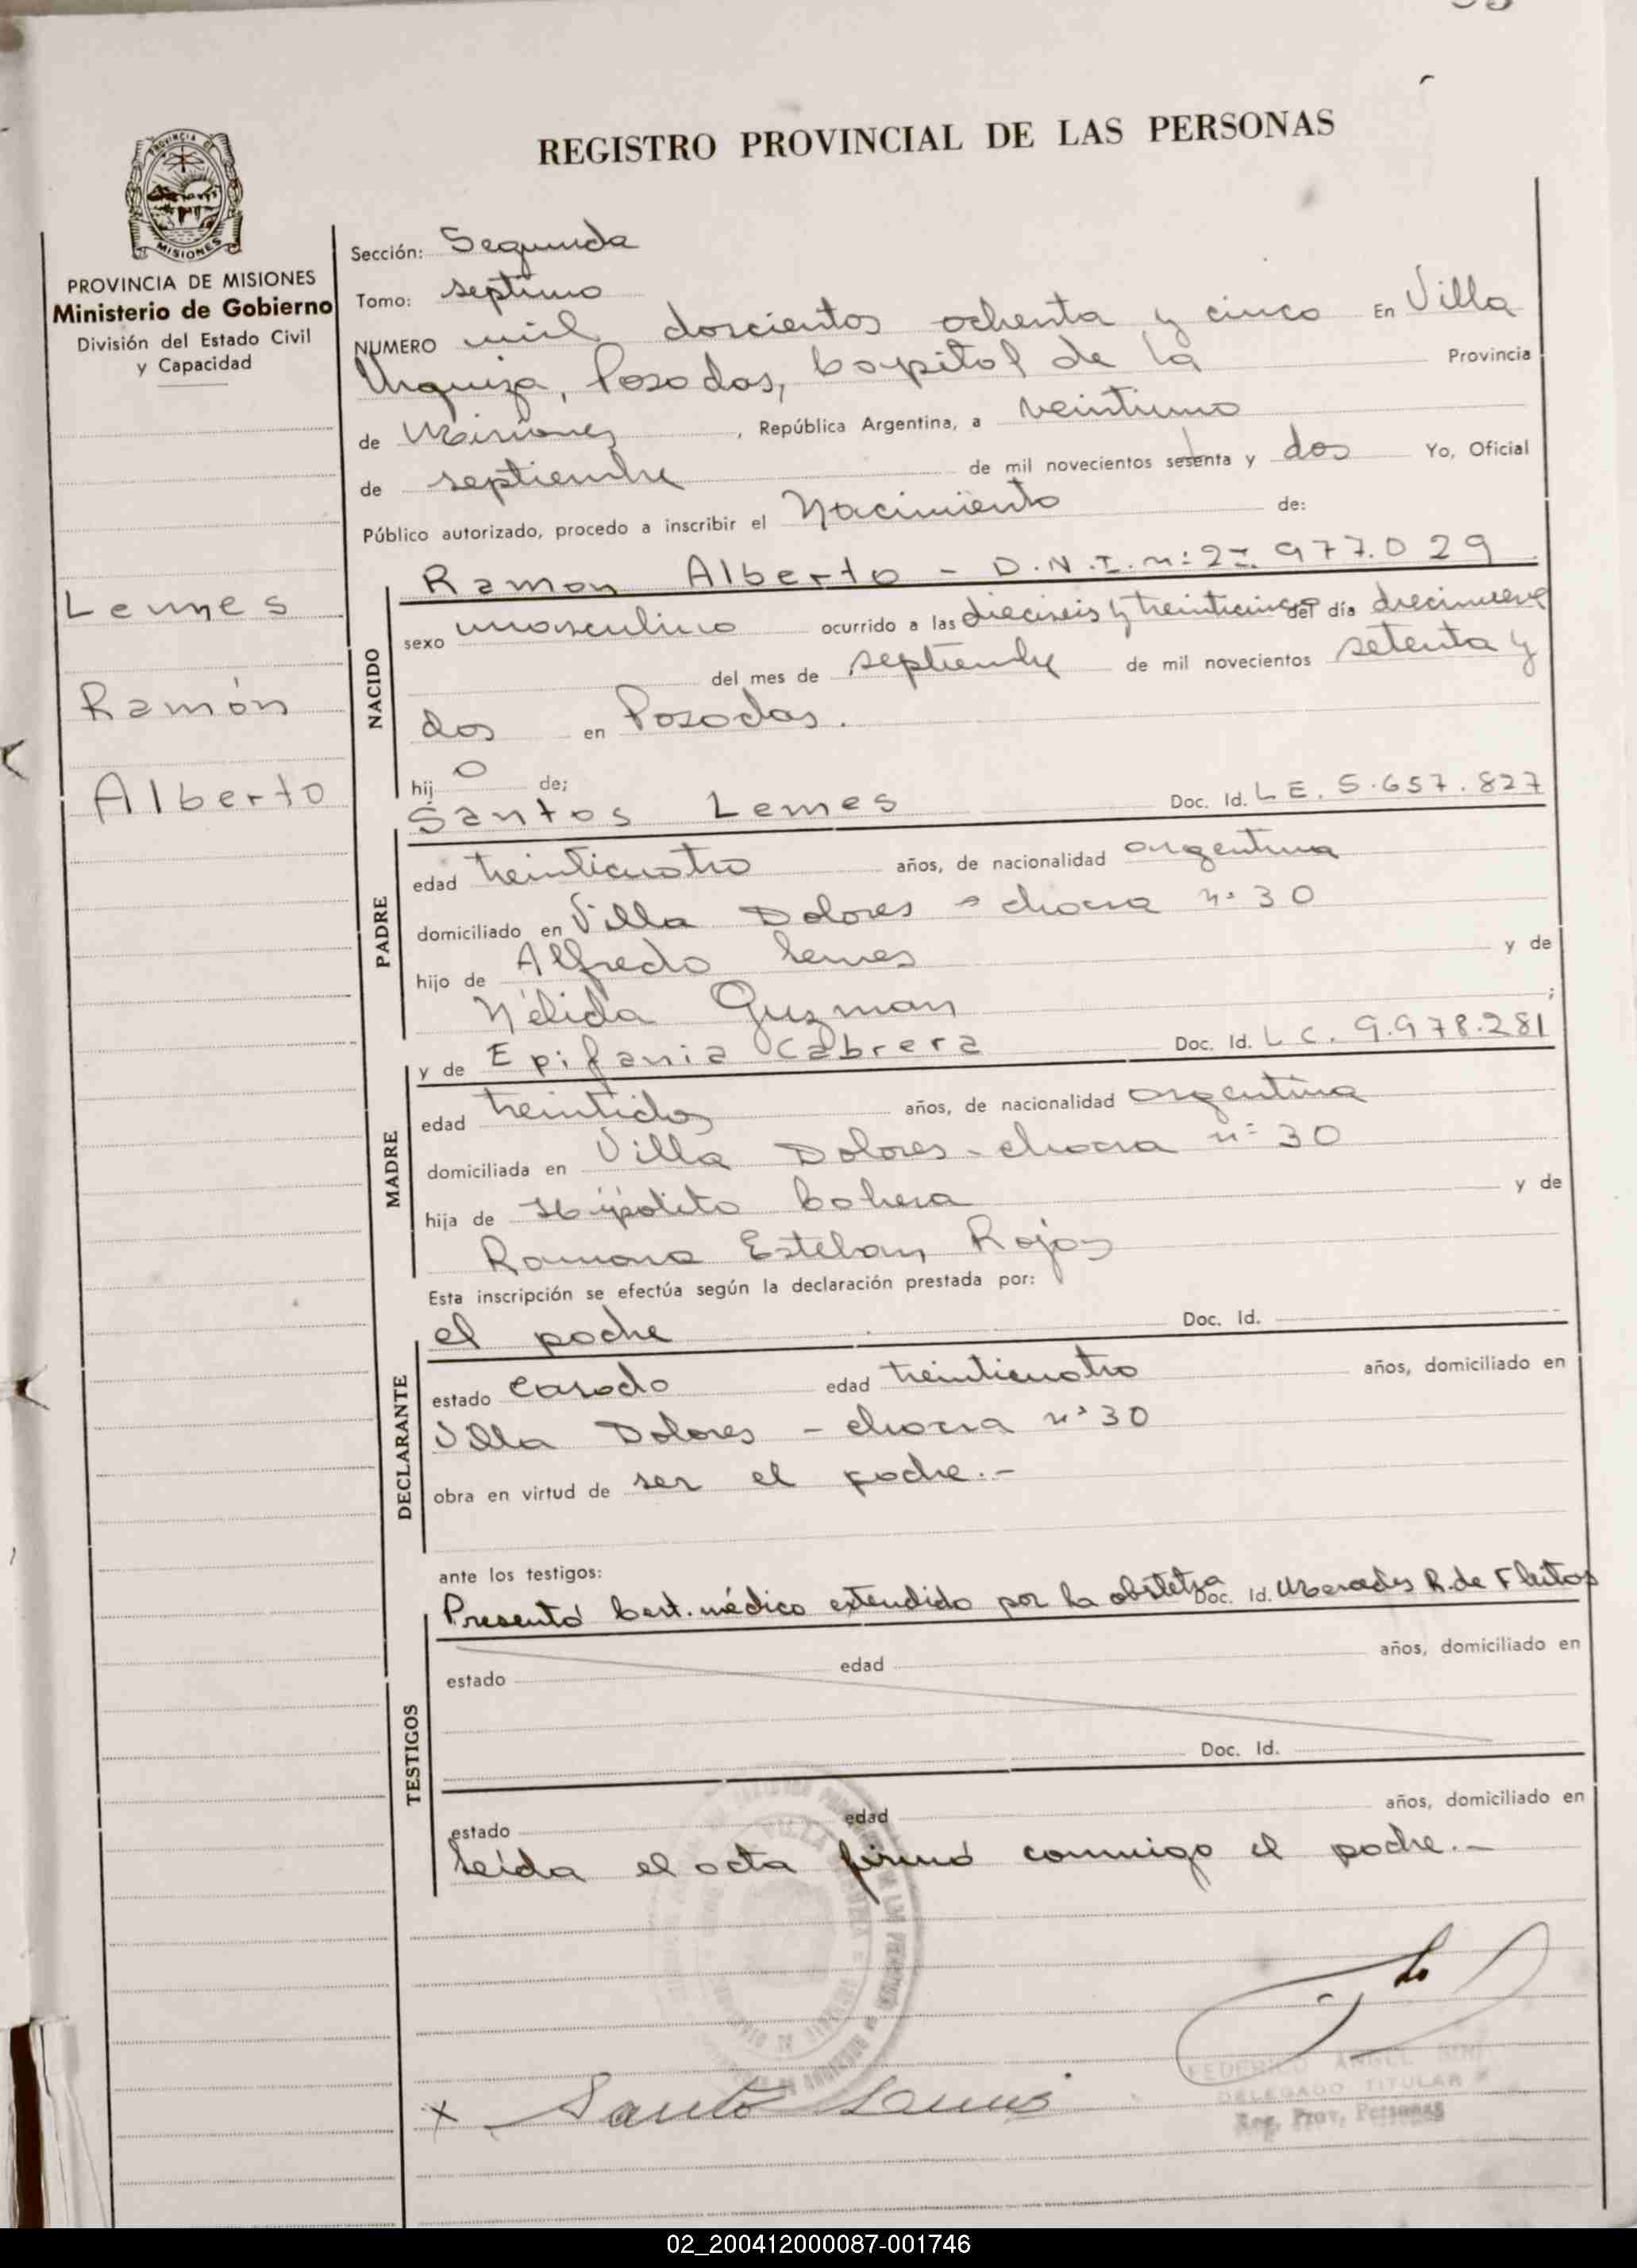 REGISTRO PROVINCIAL DE LAS PERSONAS
PROVINCIA DE MISIONES
Ministerio de Gobierno
División del Estado Civil
y Capacidad
Lemes
Ramón
Alberto
Sección: Segunda
Tomo: septimo
NUMERO mil doscientos ochenta y cinco En Villa
Urquiza, Posadas, Capital de la Provincia
de Misiones, República Argentina, a veintiuno
de septiembre de mil novecientos setenta y dos Yo, Oficial
Público autorizado, procedo a inscribir el Nacimiento de:
Ramon Alberto - D.N.I. n: 22.977.029
NACIDO
sexo masculino ocurrido a las dieciseis y treinticinco del día diecinueve
del mes de septiembre de mil novecientos setenta y
dos en Posadas.
hij o de;
Santos Lemes Doc. Id. L E. 5.657.827
PADRE
edad treinticuatro años, de nacionalidad argentina
domiciliado en Villa Dolores - chacra n° 30
hijo de Alfredo Lemes y de
Nélida Guzman ;
y de Epifania Cabrera Doc. Id. L C. 9.978.281
MADRE
edad treintidos años, de nacionalidad argentina
domiciliada en Villa Dolores - chacra n° 30
hija de Hipólito Cabrera y de
Ramona Esteban Rojas
Esta inscripción se efectúa según la declaración prestada por:
el padre Doc. Id.
DECLARANTE
estado casado edad treinticuatro años, domiciliado en
Villa Dolores - chacra n° 30
obra en virtud de ser el padre.-
ante los testigos:
Presentó Cert. médico extendido por la obstetra Doc. Id. Mercedes R. de Fleitas
TESTIGOS
estado edad años, domiciliado en
Doc. Id.
estado edad años, domiciliado en
Leída el acta firmó conmigo el padre.-
x Santo Lemes
FEDERICO ANGEL
DELEGADO TITULAR
Reg. Prov. Personas
02_200412000087-001746